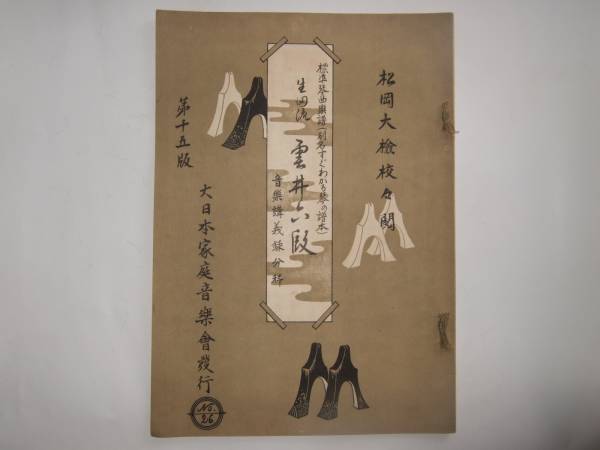 松岡大檢校々閲
標準琴曲樂譜(別名すぐわかる琴の譜本)
生田流 雲井六段
音樂講義錄分科
第十五版
大日本家庭音樂會發行
No. 26